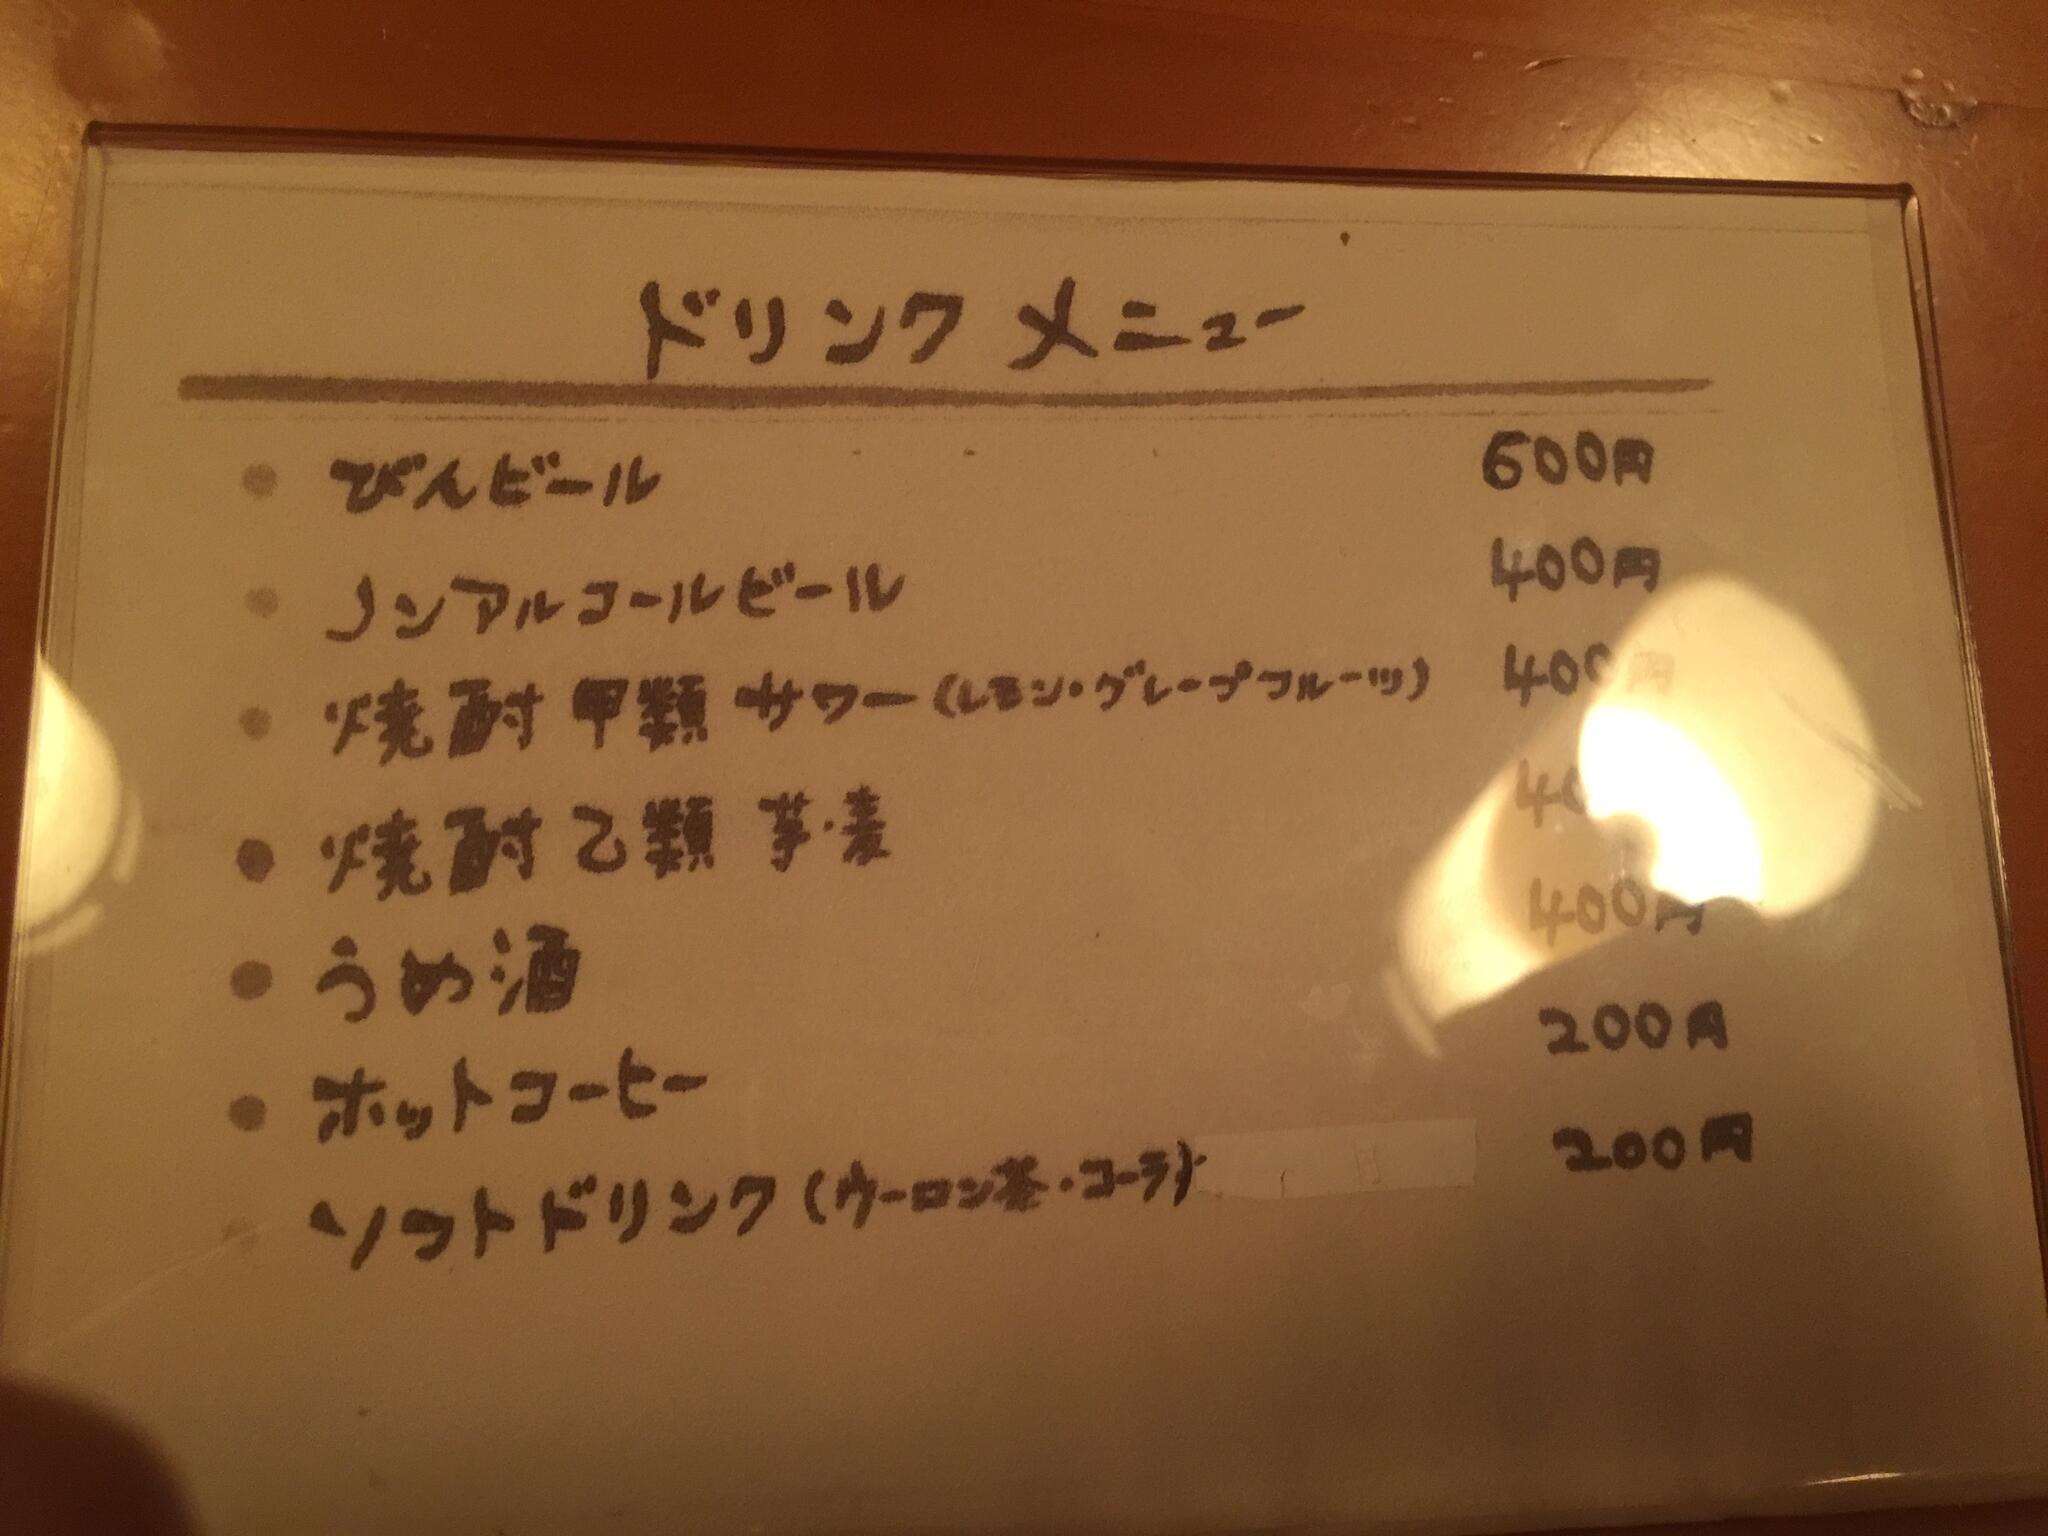 ドリンクメニュー
• びんビール 600円
• ノンアルコールビール 400円
• 焼酎甲類サワー(レモン・グレープフルーツ) 400円
• 焼酎乙類 芋・麦
• うめ酒 400円
• ホットコーヒー 200円
• ソフトドリンク(ウーロン茶・コーラ) 200円